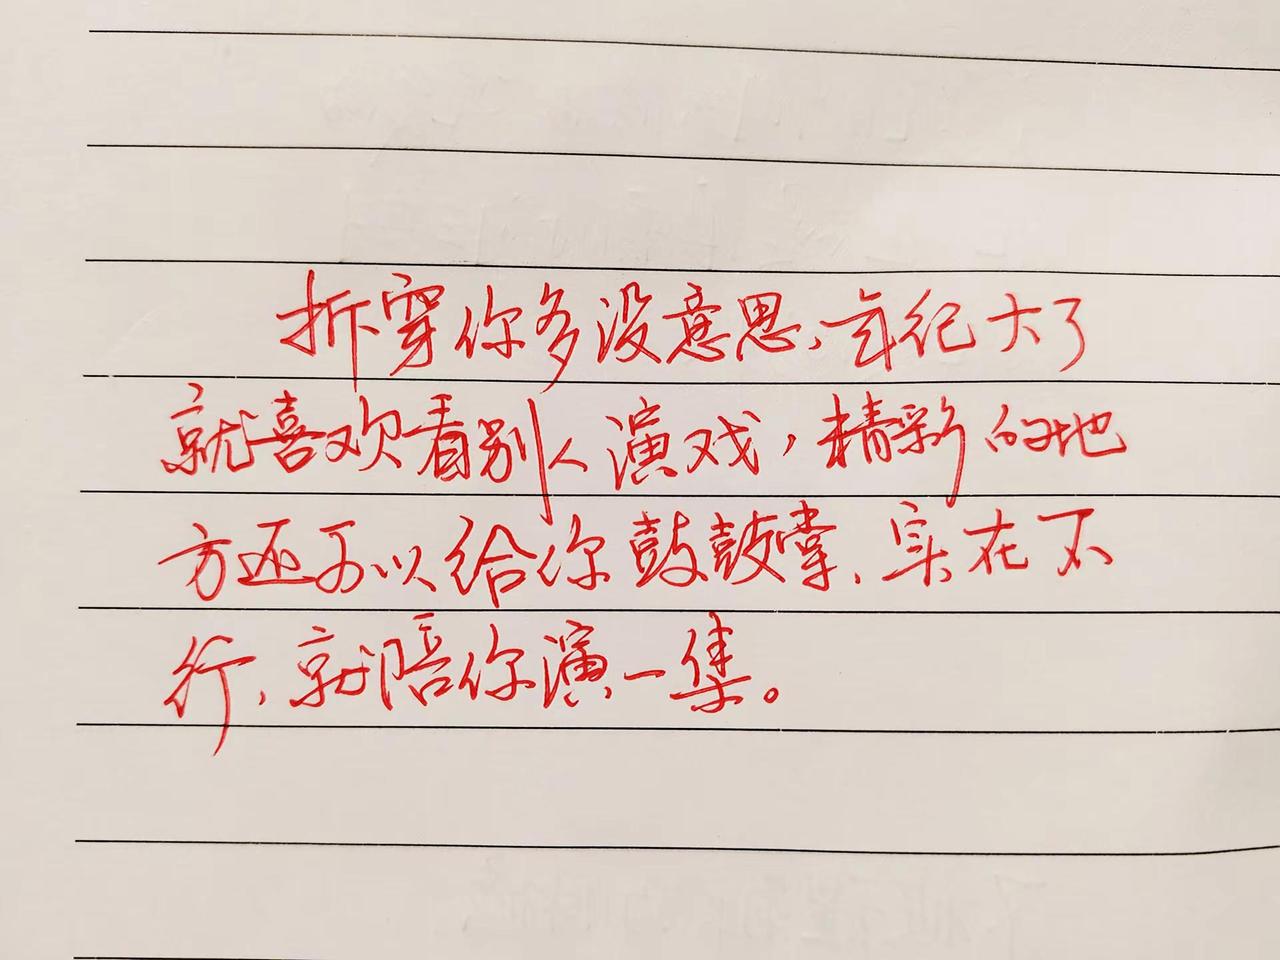 拆穿你多没意思，年纪大了
就喜欢看别人演戏，精彩的地
方还可以给你鼓鼓掌，实在不
行，就陪你演一集。